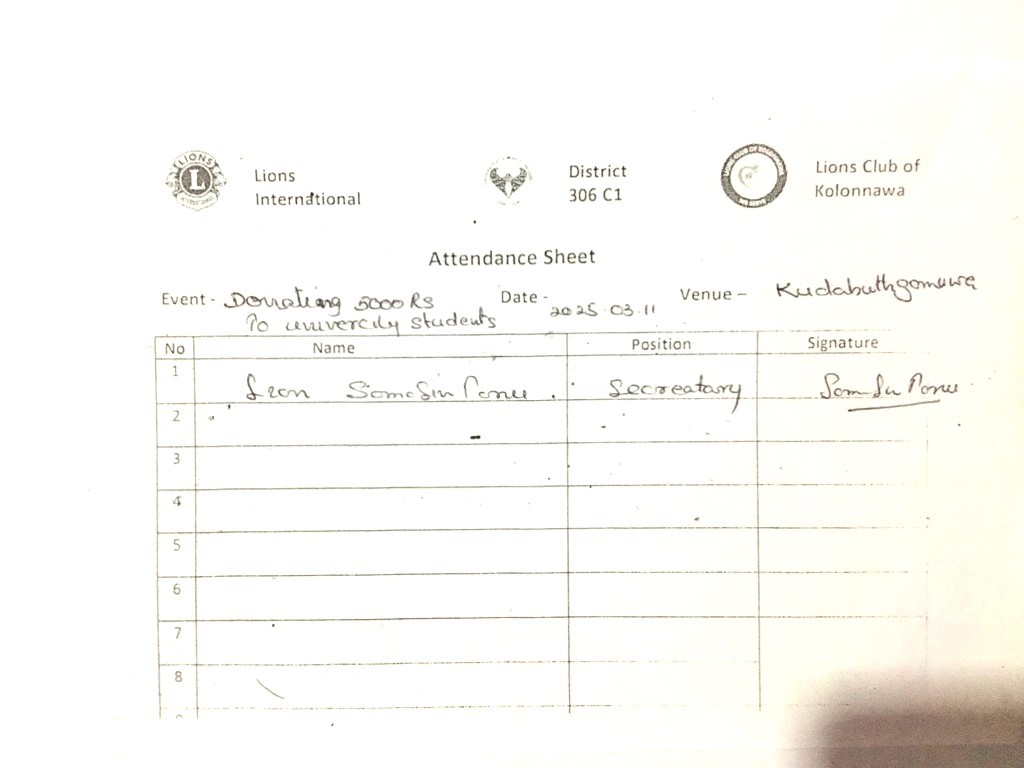 LIONS
L
INTERNATIONAL
Lions
International
District
306 C1
Lions Club of
Kolonnawa
Attendance Sheet
Event - Donating 5000 Rs
To univercity students
Date - 2025.03.11
Venue – Kudabuthgamuwa
No Name Position Signature
1 Lion Secreatary
2
3
4
5
6
7
8